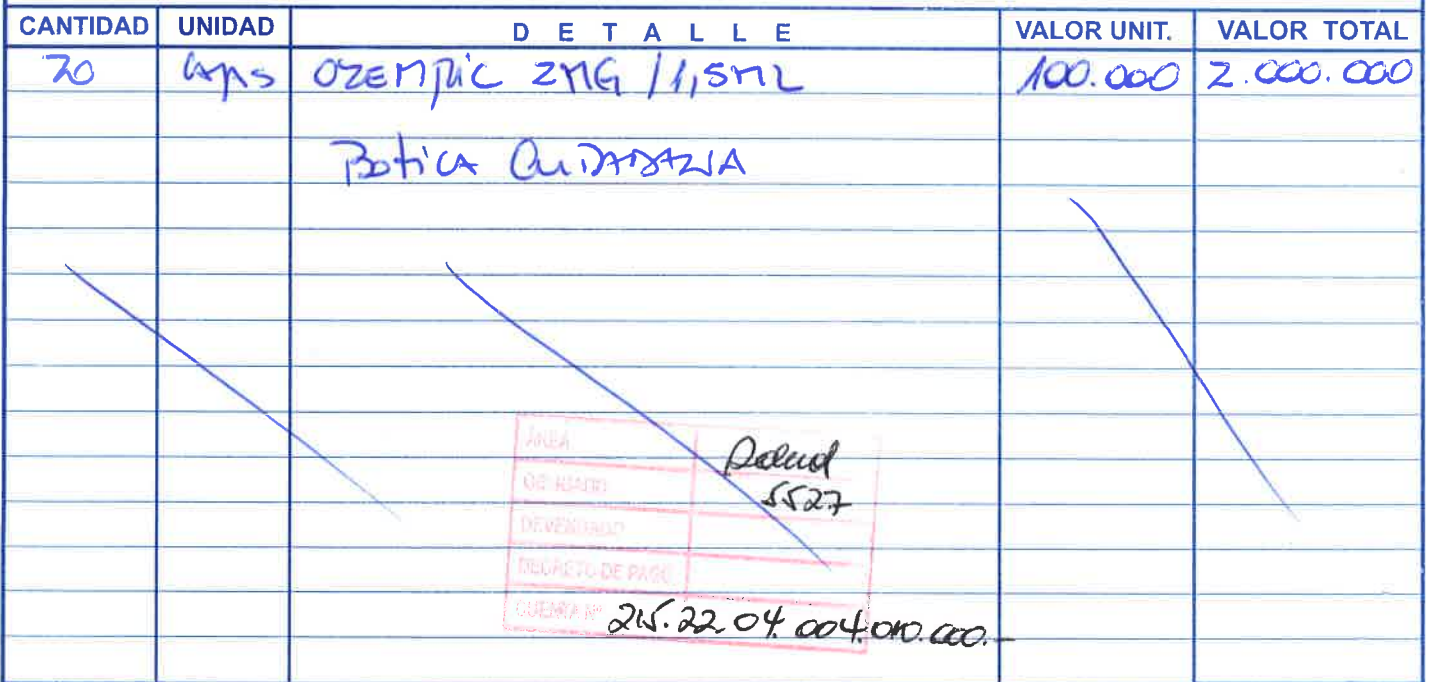 CANTIDAD UNIDAD DETALLE VALOR UNIT. VALOR TOTAL
20 OZEMPIC 2MG /1,5ML 100.000 2.000.000
Botica CIUDADANA
ÁREA Salud
OBLIGADO 5527
DEVENGADO
DECRETO DE PAGO
CUENTA Nº 215.22.04.004.010.000.-